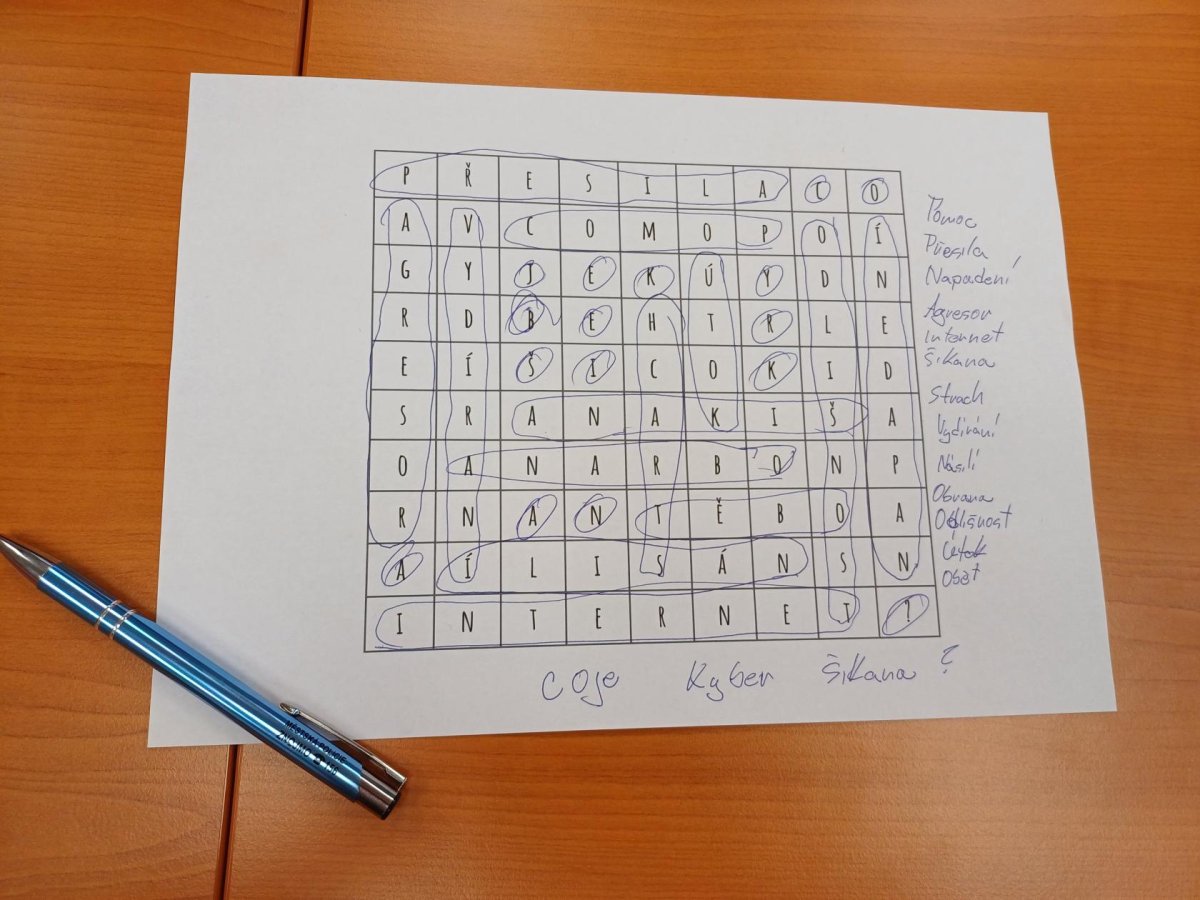 P Ř E S I L A C O
A V C O M O P O Í
G Y J E K Ú Y D N
R D B E H T R L E
E Í Š I C O K I D
S R A N A K I Š A
O A N A R B O N P
R N Á N T Ě B O A
A Í L I S Á N S N
I N T E R N E T ?
Pomoc
Přesila
Napadení
Agresor
Internet
Šikana
Strach
Vydírání
Násilí
Obrana
Odlišnost
Útok
Oběť
COje Kyber šikana ?
MĚSTSKÁ POLICIE
ZNOJMO 156